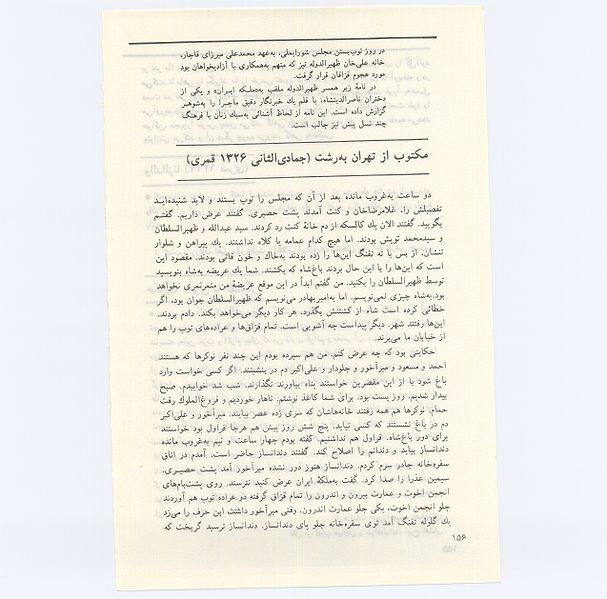 در روز توپ‌بستن مجلس شورایملی، به‌عهد محمدعلی میرزای قاجار،
خانه علی‌خان ظهیرالدوله نیز که متهم به‌همکاری با آزادیخواهان بود
مورد هجوم قزاقان قرار گرفت.
در نامهٔ زیر همسر ظهیرالدوله ملقب به‌«ملکه ایران» و یکی از
دختران ناصرالدینشاه، با قلم یك خبرنگار دقیق ماجرا را به‌شوهر
گزارش داده است. این نامه از لحاظ آشنائی به‌سبك زنان با فرهنگ
چند نسل پیش نیز جالب است.
مکتوب از تهران به‌رشت (جمادی‌الثانی ۱۳۲۶ قمری)
دو ساعت به‌غروب مانده بعد از آن که مجلس را توپ بستند و لابد شنیده‌ایـد
تفصیلش را، غلامرضاخان و کنت آمدند پشت حصیری. گفتند عرض داریم. گفتـم
بگویید. گفتند الان یك کالسکه از دم خانهٔ کنت رد کردند. سید عبدالله و ظهیرالسلطان
و سیدمحمد تویش بودند. اما هیچ کدام عمامه یا کلاه نداشتند. یك پیراهن و شلوار
تنشان. از بس با ته تفنگ این‌ها را زده بودند به‌خاك و خون قاتی بودند. مقصود این
است که این‌ها را با این حال بردند باغ‌شاه که بکشند. شما یك عریضه به‌شاه بنویسید
توسط ظهیرالسلطان را بکنید. من گفتم ابداً در این موقع عریضهٔ من مثمرثمری نخواهد
بود. به‌شاه چیزی نمی‌نویسم. اما به‌امیربهادر می‌نویسم که ظهیرالسلطان جوان بود، اگر
خطائی کرده است شاه از کشتنش بگذرد. هر کار دیگر می‌خواهد بکند. دادم بردند.
این‌ها رفتند شهر. دیگر پیداست چه آشوبی است. تمام قزاق‌ها و عراده‌های توپ را هم
از خیابان ما می‌برند.
حکایتی بود که چه عرض کنم. من هم سپرده بودم این چند نفر نوکرها که هستند
احمد و مسعود و میرآخور و جلودار و علی‌اکبر دم در بنشینند. اگر کسی خواست وارد
باغ شود یا از این مقصرین خواستند پناه بیاورند نگذارند. شب شد خوابیدم. صبح
بیدار شدیم. روز پست بود. برای شما کاغذ نوشتم. ناهار خوردیم و فروغ‌الملوك رفت
حمام. نوکرها هم همه رفتند خانه‌هاشان که سری زده عصر بیایند. میرآخور و علی‌اکبر
دم در باغ نشستند که کسی نیاید. پنج شش روز پیش هم هرجا قراول بود خواستند
برای دور باغ‌شاه. قراول هم نداشتیم. گفته بودم چهار ساعت و نیم به‌غروب مانده
دندانساز بیاید و دندانم را اصلاح کند. گفتند دندانساز حاضر است. آمدم در اتاق
سفره‌خانه چادر سرم کردم. دندانساز هنوز دور نشده میرآخور آمد پشت حصیـری.
سیمین عذرا را صدا کرد. گفت به‌ملکهٔ ایران عرض کنید نترسند. روی پشت‌بام‌های
انجمن اخوت و عمارت بیرون و اندرون را تمام قزاق گرفته دو عراده توپ هم آوردند
جلو انجمن اخوت، یکی جلو عمارت اندرون. وقتی میرآخور داشت این حرف را می‌زد
یك گلوله تفنگ آمد توی سفره‌خانه جلو پای دندانساز. دندانساز ترسید گریخت که
۱۵۶